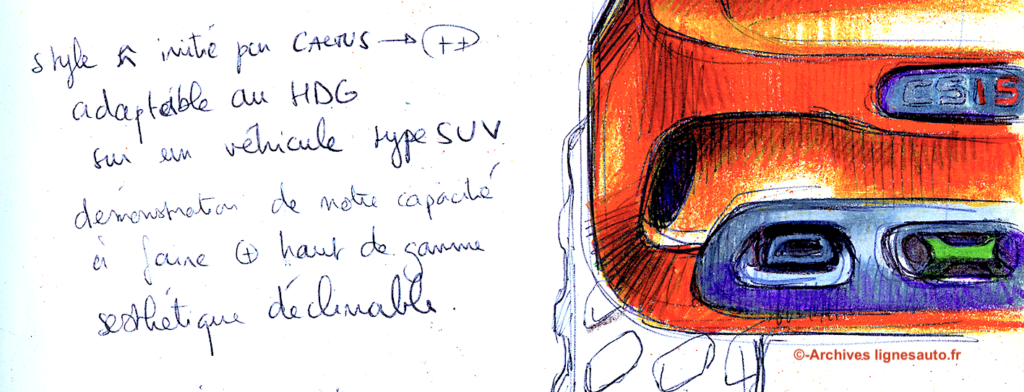 style initié par CACTUS → ++
adaptable au HDG
sur un véhicule type SUV
démonstration de notre capacité
à faire + haut de gamme
esthétique déclinable.
CS15
©-Archives lignesauto.fr